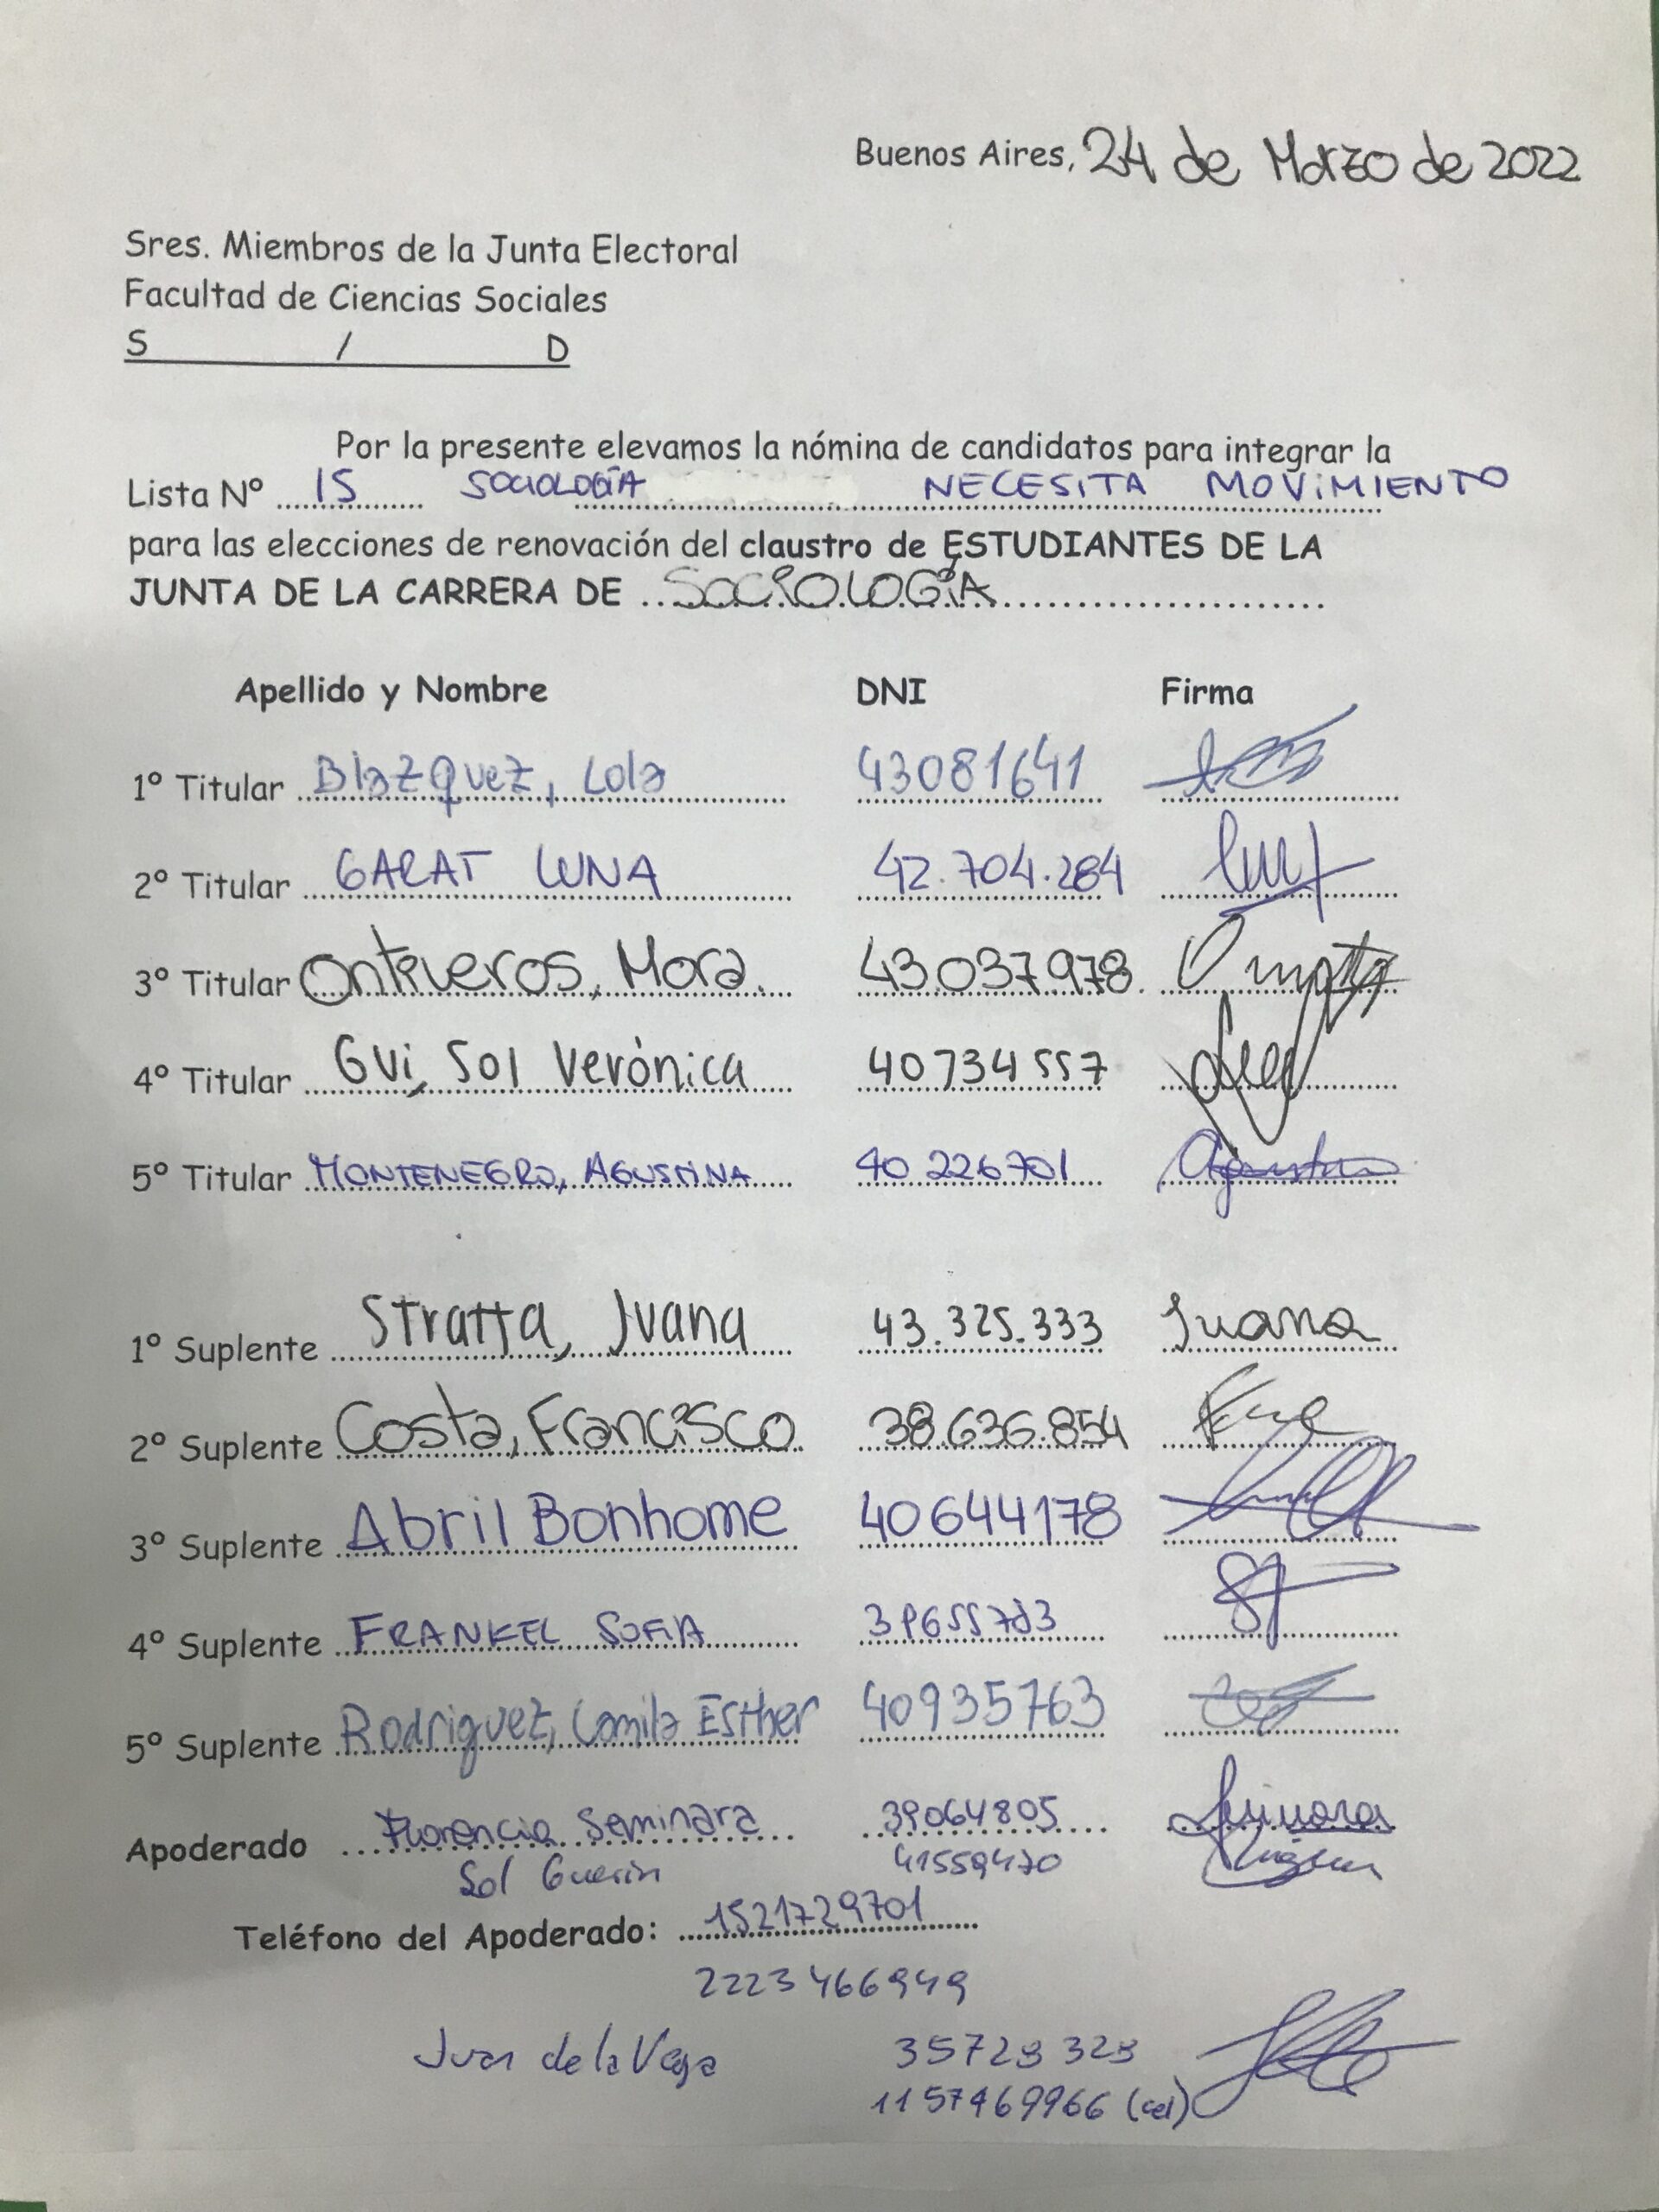 Buenos Aires, 24 de Marzo de 2022
Sres. Miembros de la Junta Electoral
Facultad de Ciencias Sociales
S / D
Por la presente elevamos la nómina de candidatos para integrar la
Lista Nº 15 SOCIOLOGÍA NECESITA MOVIMIENTO
para las elecciones de renovación del claustro de ESTUDIANTES DE LA
JUNTA DE LA CARRERA DE SOCIOLOGÍA
Apellido y Nombre DNI Firma
1º Titular Blazquez, Lola 43081641
2º Titular GARAT LUNA 42.704.284
3º Titular Ontiveros, Mora. 43.037.978.
4º Titular Gui, Sol Verónica 40734557
5º Titular MONTENEGRO, AGUSTINA 40.226701 Agustina
1º Suplente Stratta, Juana 43.325.333 Juana
2º Suplente Costa, Francisco 38.636.854
3º Suplente Abril Bonhome 40644178
4º Suplente FRANKEL SOFIA
5º Suplente Rodriguez, Camila Esther 40935763
Apoderado Florencia Seminara 39064805 Seminara
Sol Guerin 41559470
Teléfono del Apoderado: 1521729701
2223466949
Juan de la Vega 35728328
1157469966 (cel)